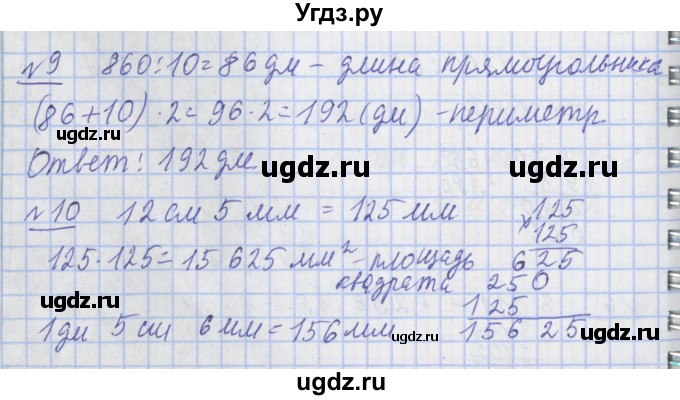 Угдз.ру
№9 860:10=86 дм – длина прямоугольника
(86+10)·2=96·2=192(дм) – периметр
ugdz.ru ugdz.ru
Ответ: 192 дм.
ugdz.ru ugdz.ru
№10 12 см 5 мм = 125 мм ×125
125
125·125=15 625 мм² – площадь 625
квадрата 250
ugdz.ru ugdz.ru
125
1 дм 5 см 6 мм = 156 мм 15625
ugdz.ru ugdz.ru
ugdz.ru